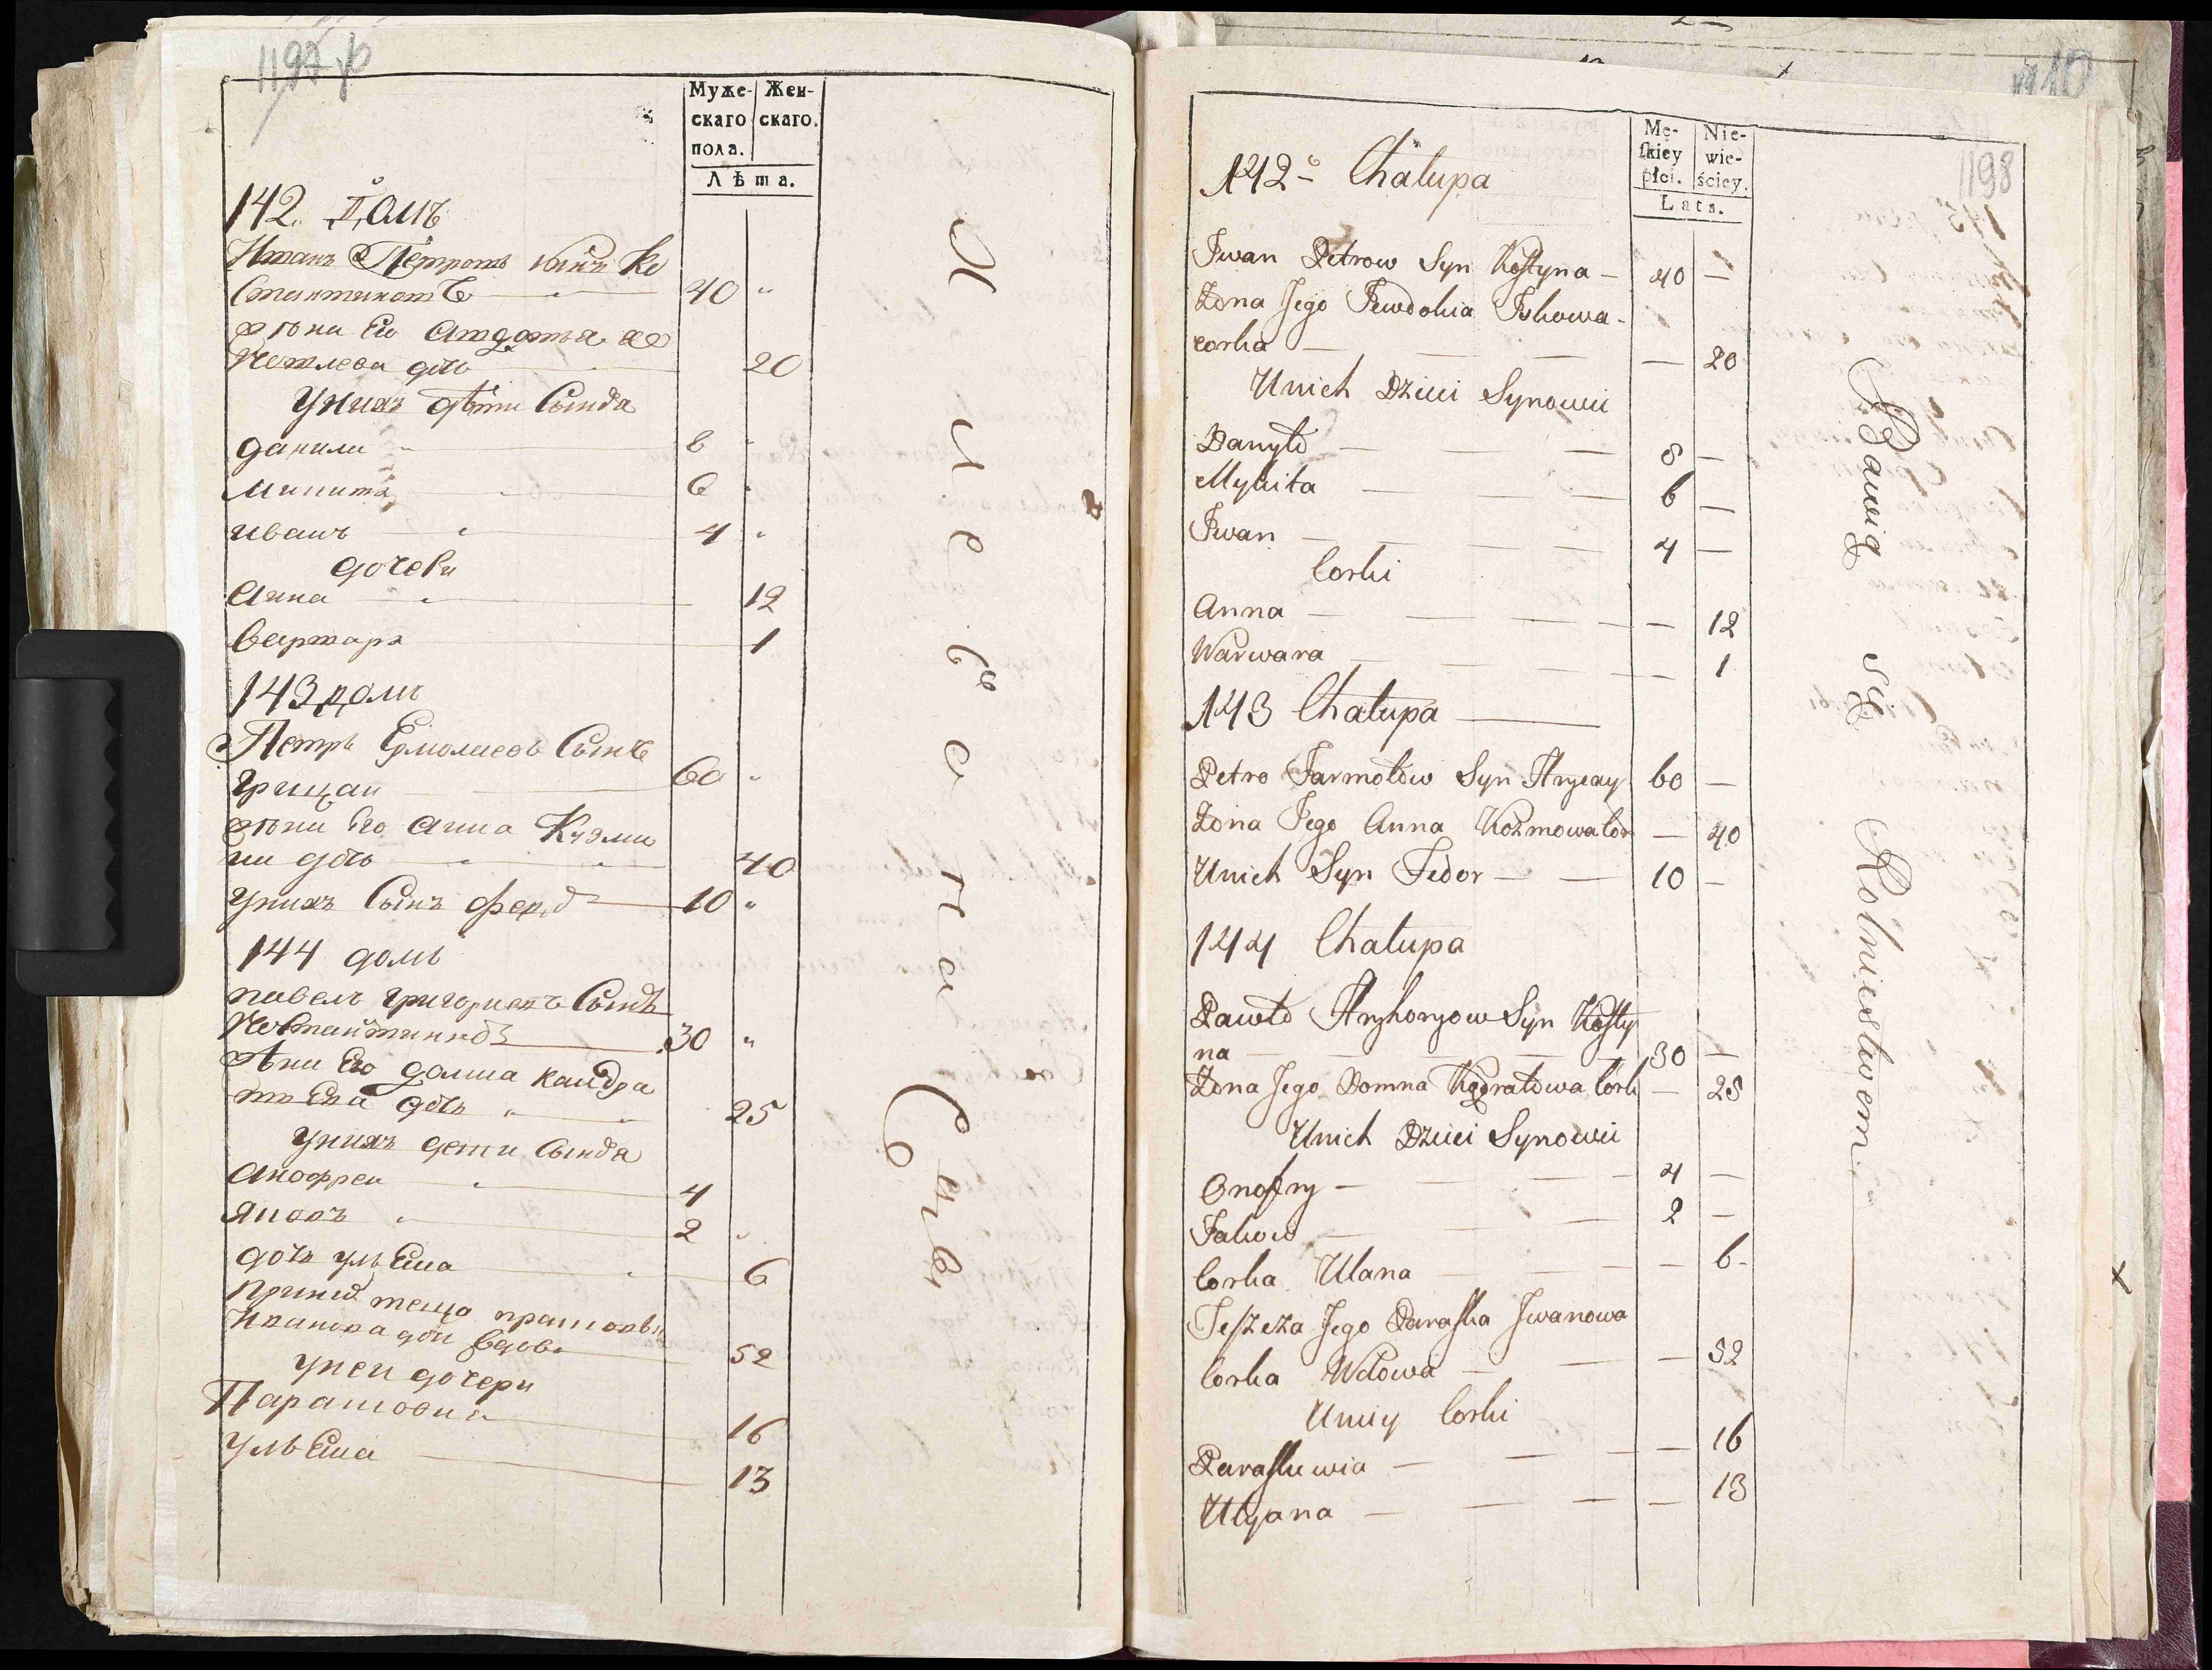 1197
Муже- Жен-
скаго скаго.
пола.
Лѣта.
142. домъ
Иванъ Петровъ сынъ Ко
стантиновъ 40 "
жена Его Авдотья
дочь 20
У нихъ дѣти Сынова
данила 8 "
Микита 6 "
иванъ 4 "
дочери
Анна 12
Варвара 1
143 домъ
Петръ Ермолаевъ Сынъ
Грицай 60 "
жена Его Анна Кузми
на дочь 40
У нихъ Сынъ Федоръ 10 "
144 домъ
павелъ григориевъ Сынъ
Костантиновъ 30 "
жена Его домна Кандра
тьева дочь 25
У нихъ дети Сынова
Анофреи 4
Яковъ 2 "
дочь ульяна 6
При нем теща прасковья
Иванова дочь вдова 52
У неи дочери
Парасковия 16
Ульяна 13
1198
Mę- Nie-
skiey wie-
płci. ściey.
Lata.
142 Chałupa
Iwan Petrow Syn Kostyna — 40 —
Żona Jego Fewdokia Iskowa
corka — — 20
U nich Dzieci Synowie
Danyło — 8 —
Mykita — 6 —
Iwan — 4 —
Corki
Anna — — 12
Warwara — — 1
143 Chałupa
Petro Jarmołow Syn Hrycay 60 —
Żona Jego Anna Kozmowa Cor — 40
U nich Syn Fedor — 10 —
144 Chałupa
Pawło Hryhoryow Syn Kosty
na — 30 —
Żona Jego Domna Kądratowa Cork — 25
U nich Dzieci Synowie
Onofry — 4 —
Jakow — 2 —
Corka Ulana — — 6
Teszcza Jego Paraska Iwanowa
Corka Wdowa — — 52
U niey Corki
Paraskiewia — — 16
Ulyana — — 13
Bawią się Rolnictwem